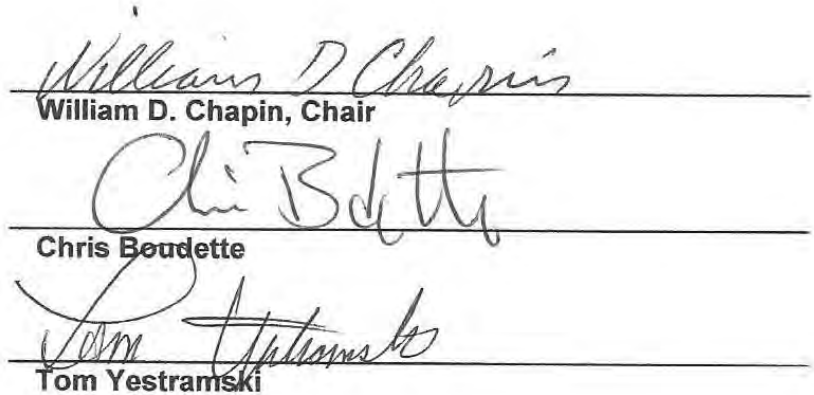 William D Chapin
William D. Chapin, Chair
Chris Boudette
Chris Boudette
Tom Yestramski
Tom Yestramski